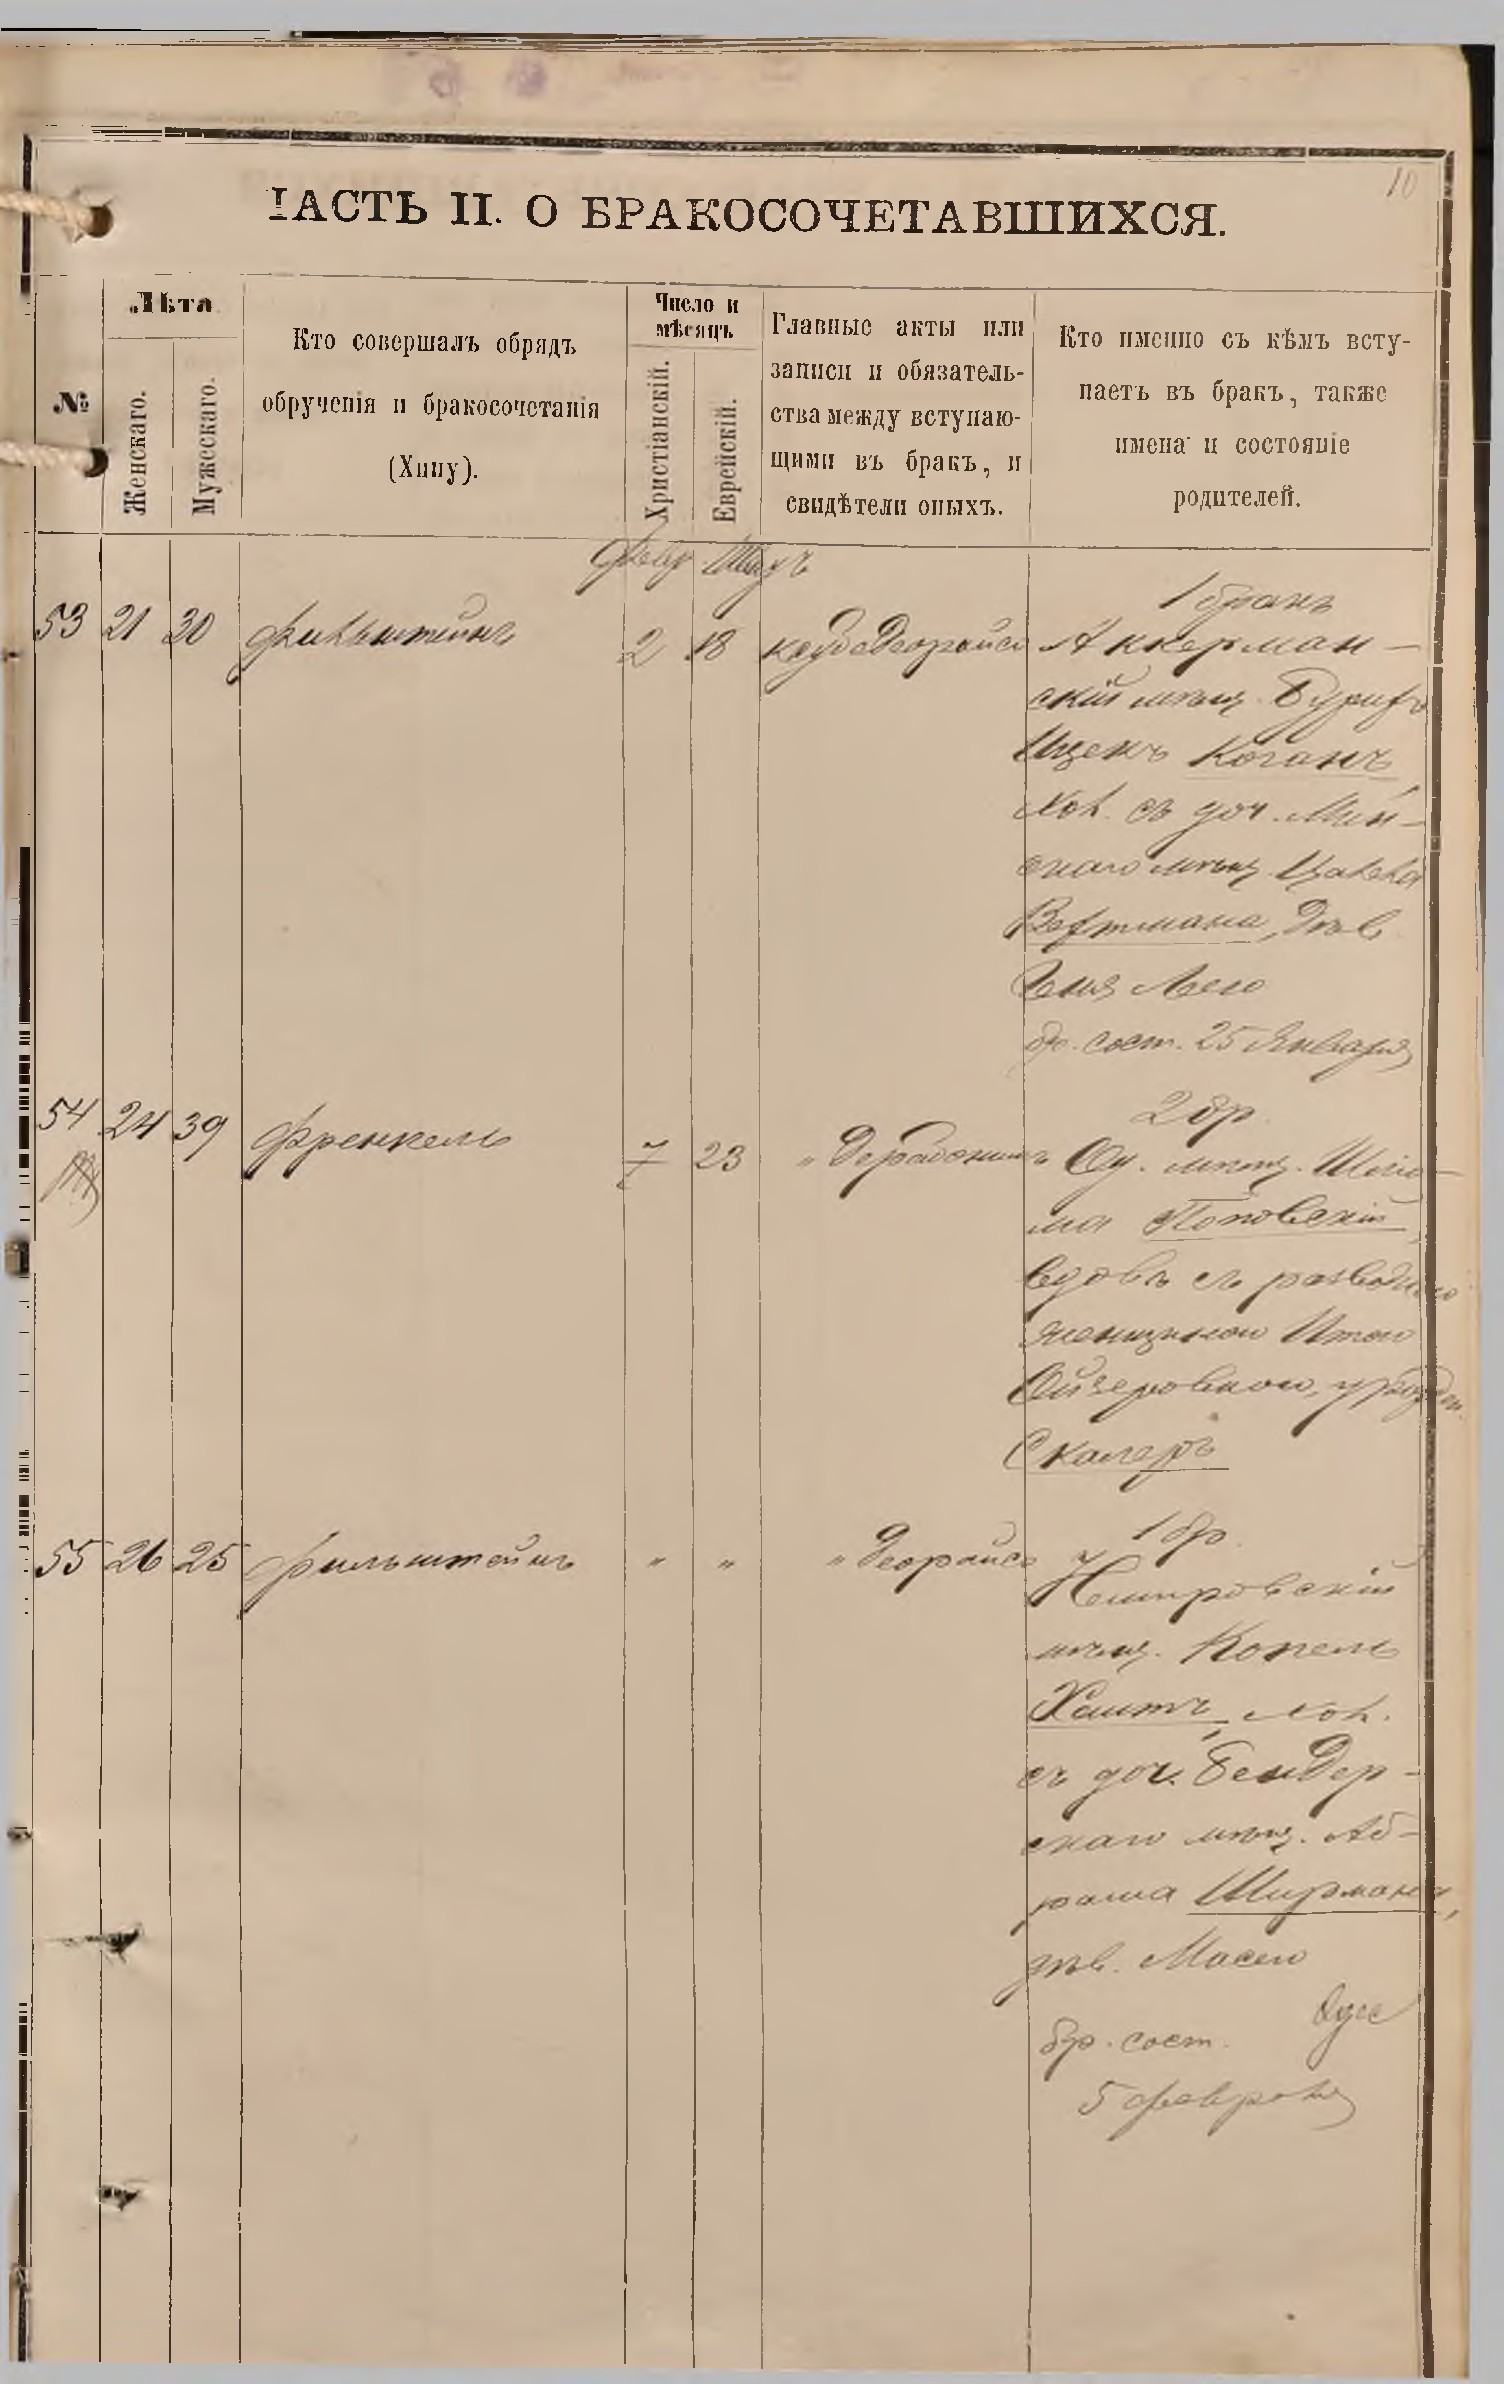 10
ЧАСТЬ II. О БРАКОСОЧЕТАВШИХСЯ.
№
Лѣта
Женскаго.
Мужескаго.
Кто совершалъ обрядъ
обрученія и бракосочетанія
(Хипу).
Число и
мѣсяцъ
Христіанскій.
Еврейскій.
Главные акты или
записи и обязатель-
ства между вступаю-
щими въ бракъ, и
свидѣтели оныхъ.
Кто именно съ кѣмъ всту-
паетъ въ бракъ, также
имена и состояніе
родителей.
Февр
53 21 30 Фильштейнъ 2 18
1 бракъ
Аккерман-
скій мѣщ.
Ицекъ Коганъ,
хол. съ доч. Мин-
скаго мѣщ.
дѣв.
Леею
бр. сост. 25 Января
54 24 39 Френкель 7 23
2 бр.
Од. мѣщ. Шлио-
ма Поповскій,
вдовъ съ разводною
женщиною Итою
Скалеръ
55 26 25 Фильштейнъ " " " Деорайсо
1 бр.
Немировскій
мѣщ. Копель
хол.
съ доч. Бендер-
скаго мѣщ. Аб-
рама Ширмана,
дѣв. Масею
бр. сост.
5 февраля